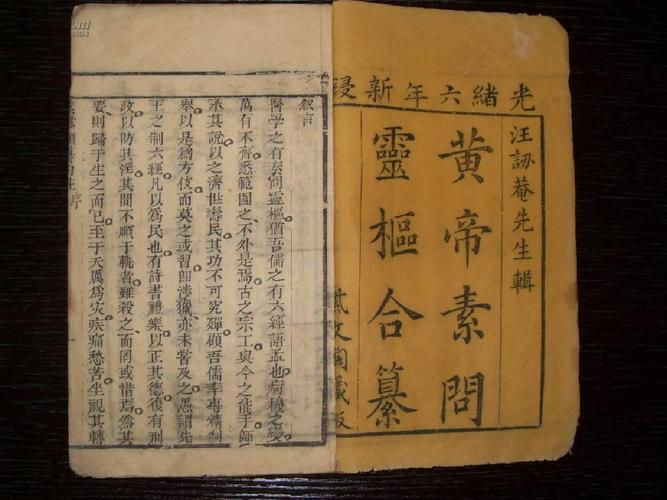 光緒六年新鋟
汪訒菴先生輯
黃帝素問
靈樞合纂
敘言
醫學之有素問靈樞猶吾儒之有六經語孟也病機之變
萬有不齊悉範圍之不外是焉古之宗工與今之能手師
承其說以之濟世壽民其功不可究殫顧吾儒率專精制
舉以是為方伎而莫之或習即涉獵亦未嘗及之愚謂先
王之制六經凡以為民也有詩書禮樂以正其德復有刑
政以防其淫其間不順于軌者雖殺之而罔或惜焉然其
要則歸于生之而已至于夭厲為灾疾痛愁苦坐視其轉